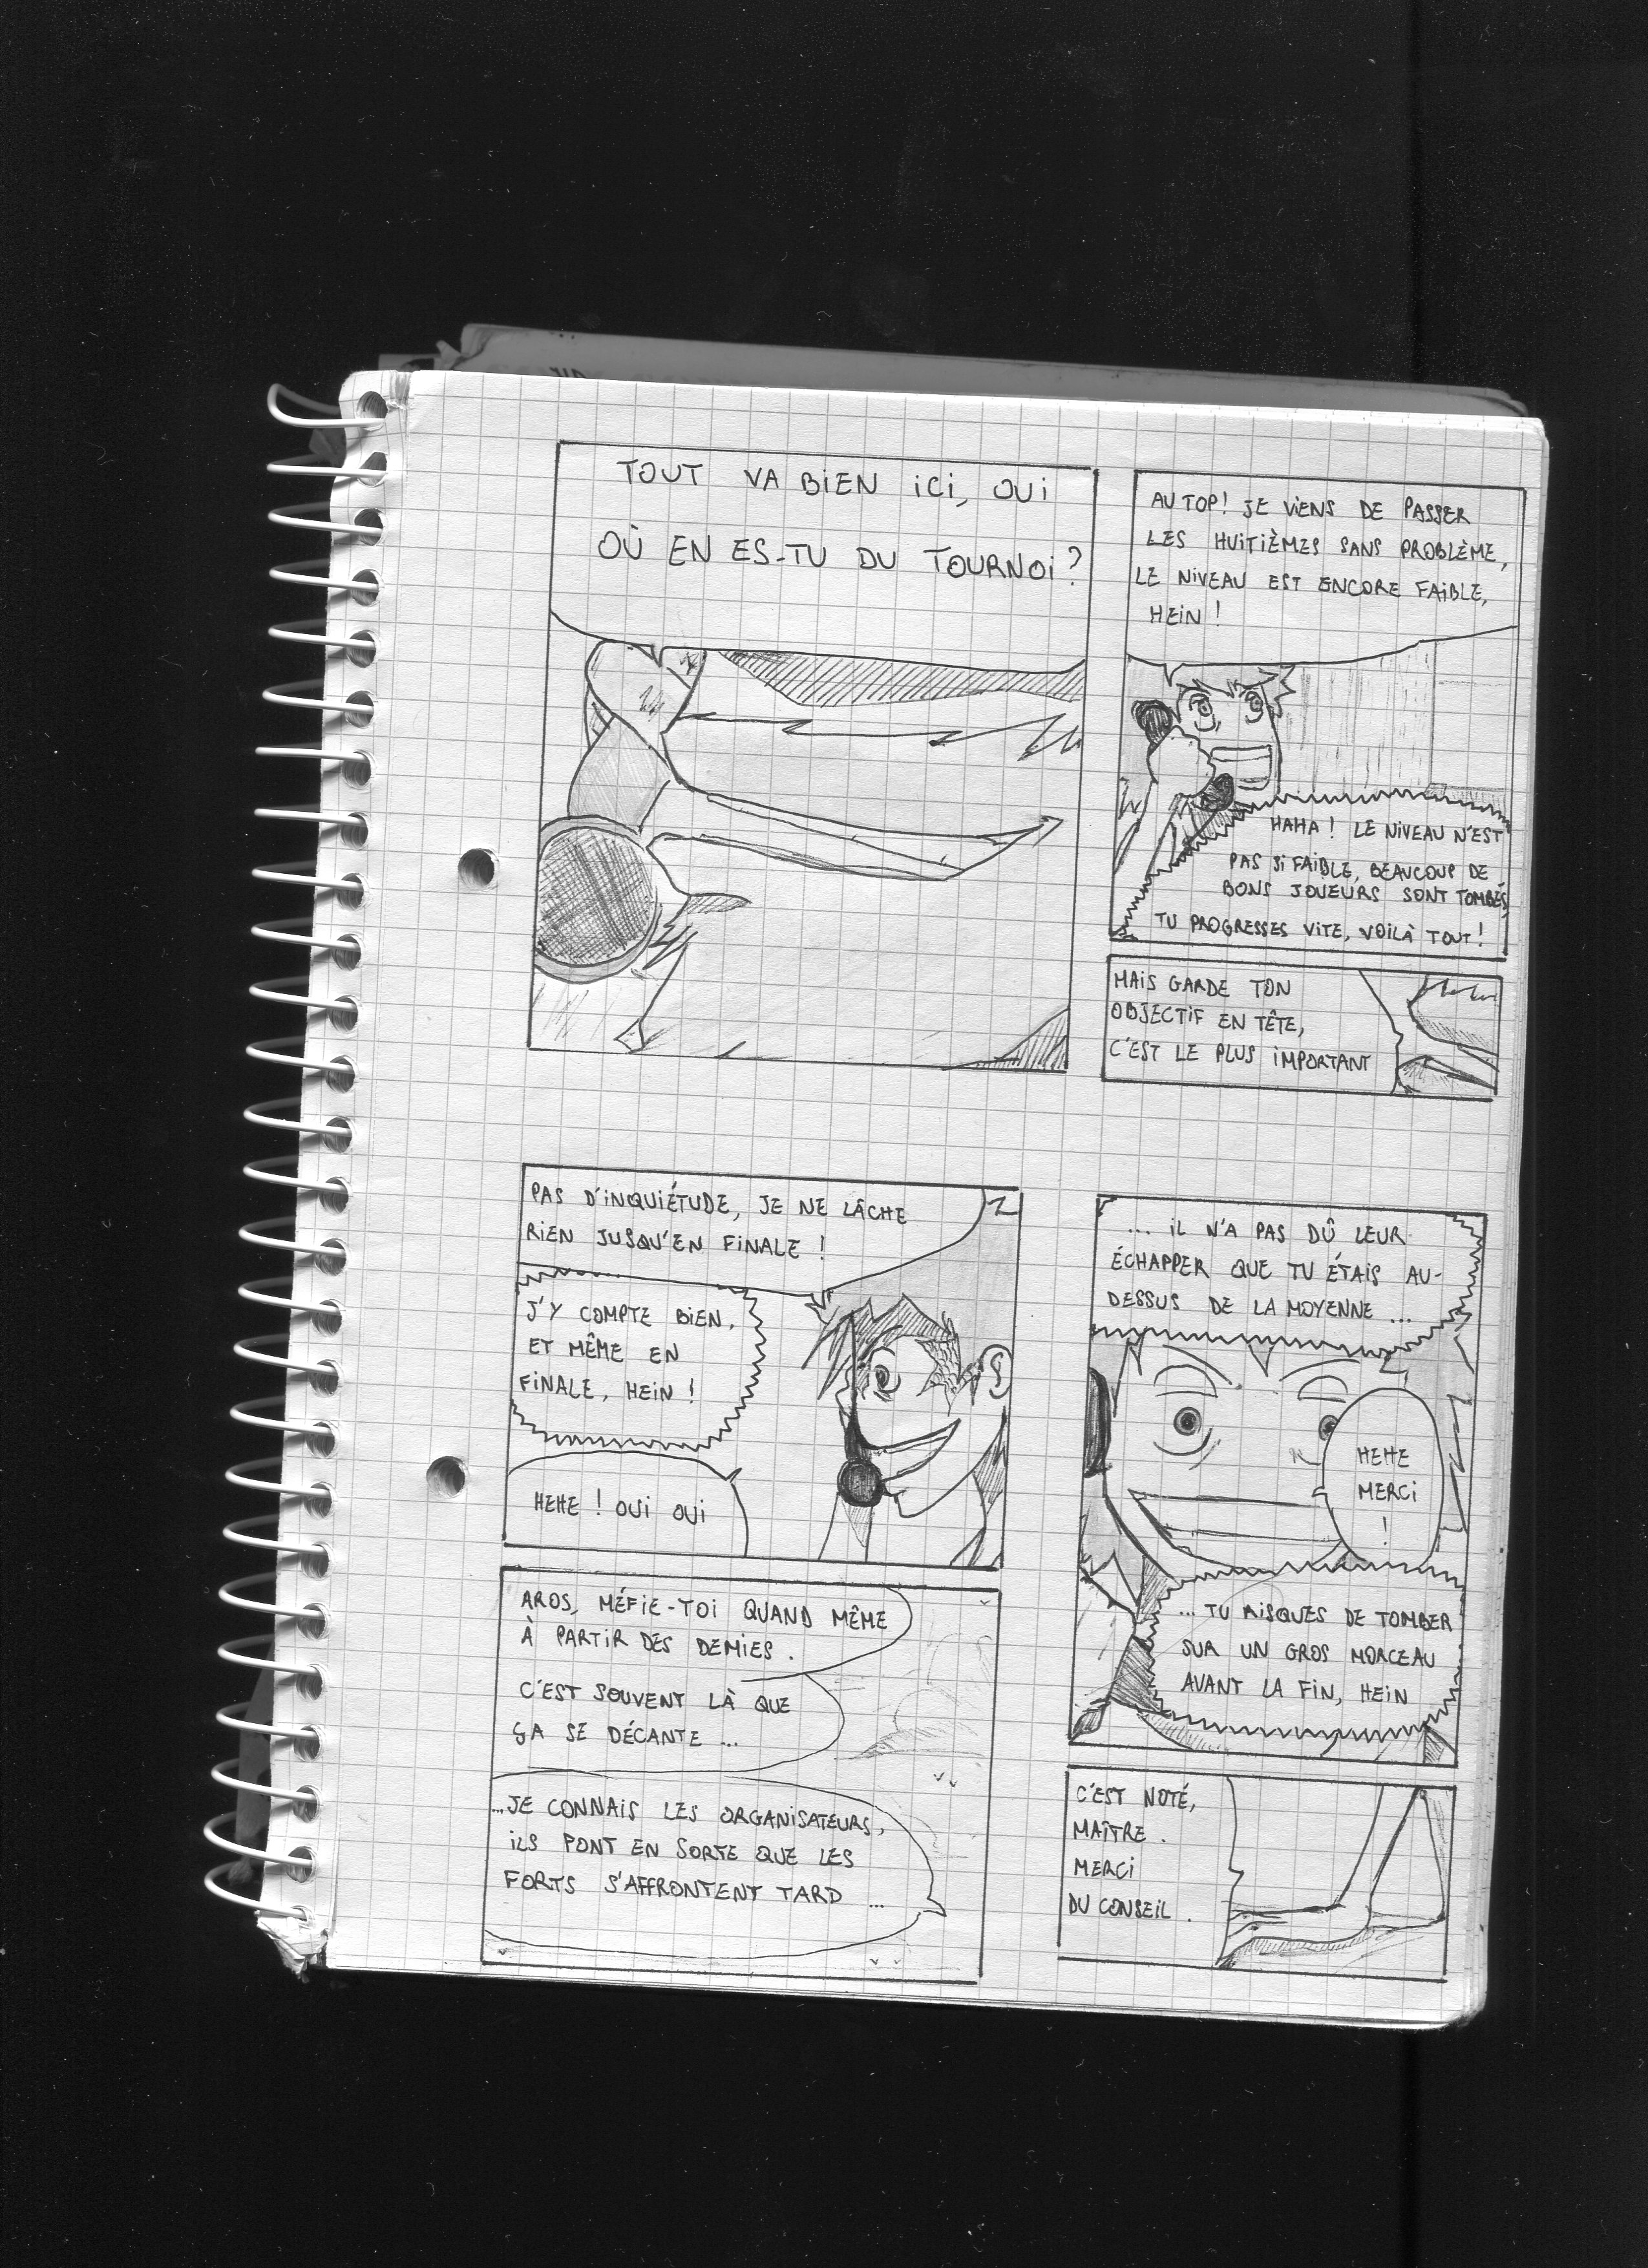 TOUT VA BIEN ICI, OUI
OÙ EN ES-TU DU TOURNOI ?
AU TOP ! JE VIENS DE PASSER
LES HUITIÈMES SANS PROBLÈME,
LE NIVEAU EST ENCORE FAIBLE,
HEIN !
HAHA ! LE NIVEAU N'EST
PAS SI FAIBLE, BEAUCOUP DE
BONS JOUEURS SONT TOMBÉS,
TU PROGRESSES VITE, VOILÀ TOUT !
MAIS GARDE TON
OBJECTIF EN TÊTE,
C'EST LE PLUS IMPORTANT
PAS D'INQUIÉTUDE, JE NE LÂCHE
RIEN JUSQU'EN FINALE !
J'Y COMPTE BIEN,
ET MÊME EN
FINALE, HEIN !
HEHE ! OUI OUI
AROS, MÉFIE-TOI QUAND MÊME
À PARTIR DES DEMIES.
C'EST SOUVENT LÀ QUE
ÇA SE DÉCANTE ...
...JE CONNAIS LES ORGANISATEURS,
ILS FONT EN SORTE QUE LES
FORTS S'AFFRONTENT TARD ...
... IL N'A PAS DÛ LEUR
ÉCHAPPER QUE TU ÉTAIS AU-
DESSUS DE LA MOYENNE ...
HEHE
MERCI
!
... TU RISQUES DE TOMBER
SUR UN GROS MORCEAU
AVANT LA FIN, HEIN
C'EST NOTÉ,
MAÎTRE.
MERCI
DU CONSEIL.